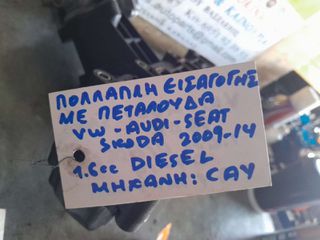 ΠΟΛΛΑΠΛΗ ΕΙΣΑΓΩΓΗΣ
ΜΕ ΠΕΤΑΛΟΥΔΑ
VW-AUDI-SEAT
SKODA 2009-14
1.6cc DIESEL
ΜΗΧΑΝΗ: CAY